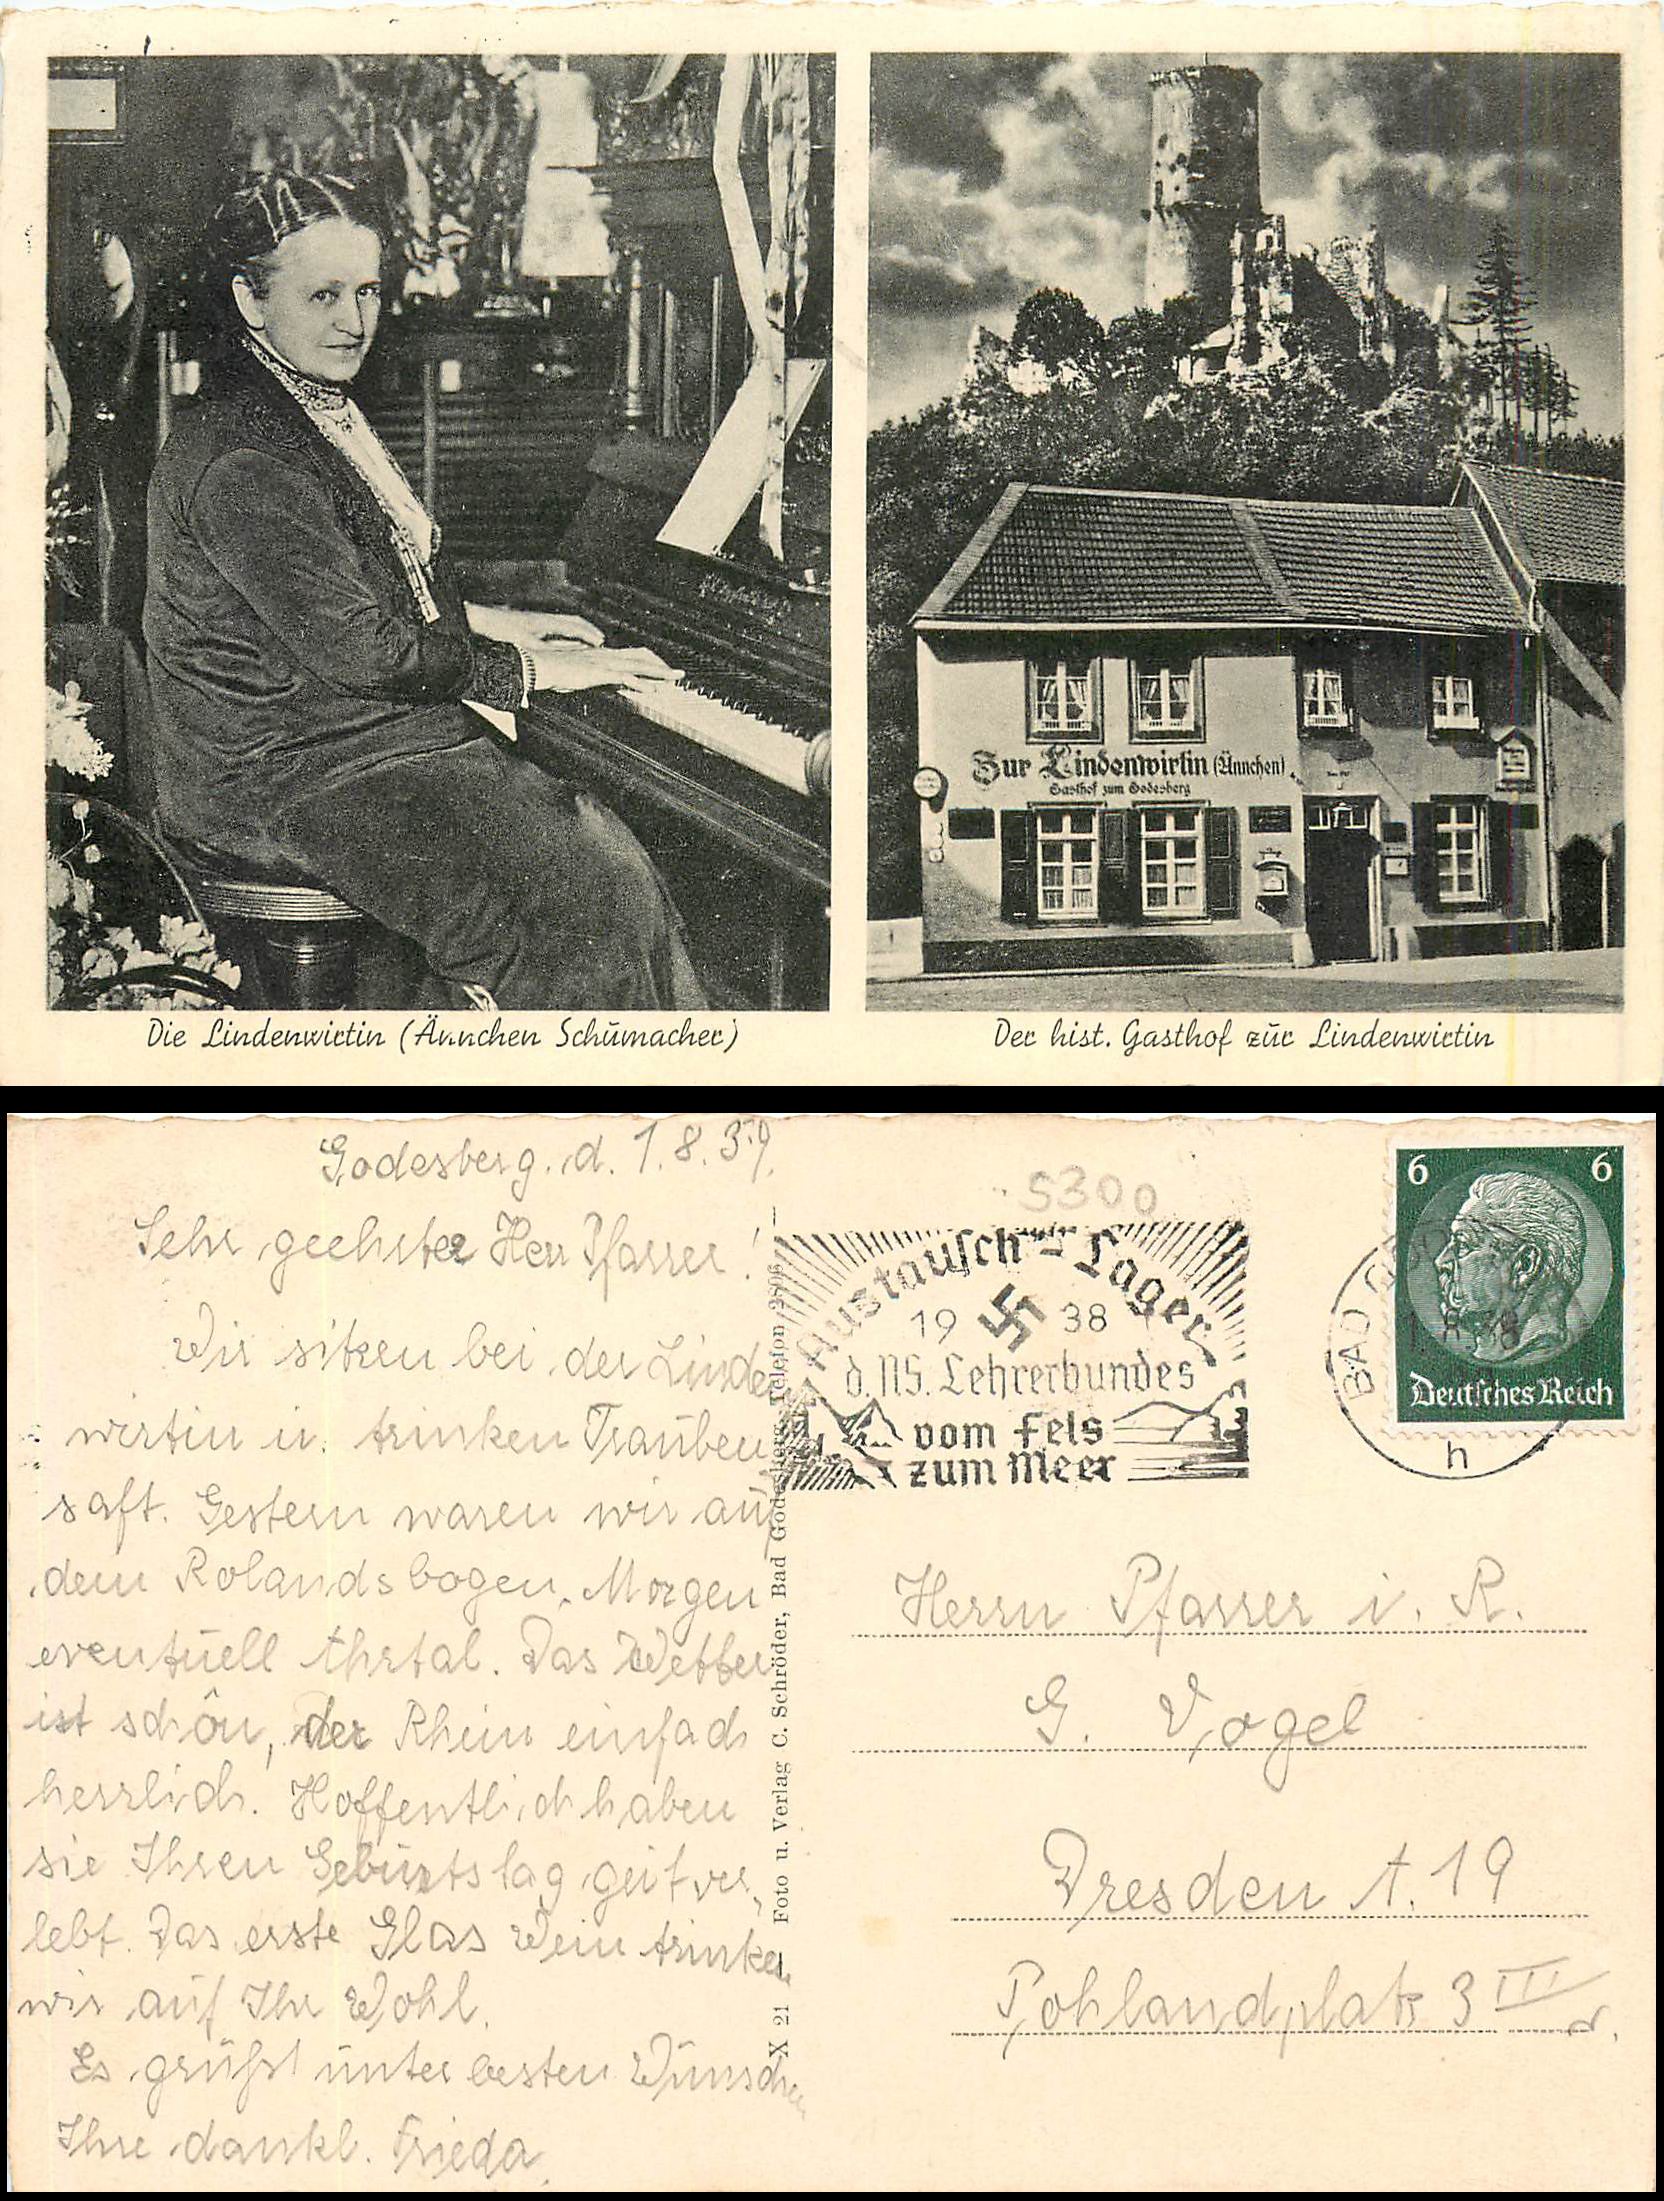 Zur Lindenwirtin (Ännchen)
Gasthof zum Godesberg
Die Lindenwirtin (Ännchen Schumacher)
Der hist. Gasthof zur Lindenwirtin
Godesberg, d. 1.8.39.
Sehr geehrter Herr Pfarrer!
Wir sitzen bei der Linden
wirtin u. trinken Trauben
saft. Gestern waren wir auf
dem Rolandsbogen. Morgen
eventuell Ahrtal. Das Wetter
ist schön, der Rhein einfach
herrlich. Hoffentlich haben
sie Ihren Geburtstag gut ver-
lebt. Das erste Glas Wein trinken
wir auf Ihr Wohl.
Es grüßt unter besten Wünschen
Ihre dankb. Frieda.
X 21 Foto u. Verlag C. Schröder, Bad Godesberg, Telefon 2806
5300
Austausch-Lager
19 38
d. NS. Lehrerbundes
vom Fels
zum Meer
6 6
Deutsches Reich
BAD
1.8.38
h
Herrn Pfarrer i. R.
G. Vogel
Dresden A. 19
Pohlandplatz 3 III
r.